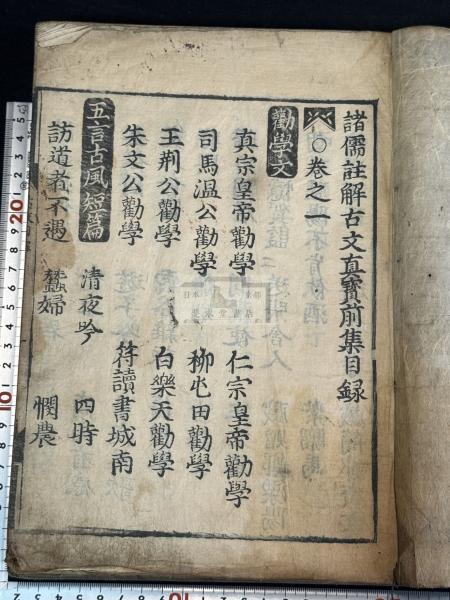 諸儒註解古文真寳前集目録
○卷之一
勸學文
真宗皇帝勸學 仁宗皇帝勸學
司馬温公勸學 柳屯田勸學
王荆公勸學 白樂天勸學
朱文公勸學 符讀書城南
五言古風短篇
清夜吟 四時
訪道者不遇 蠶婦 憫農